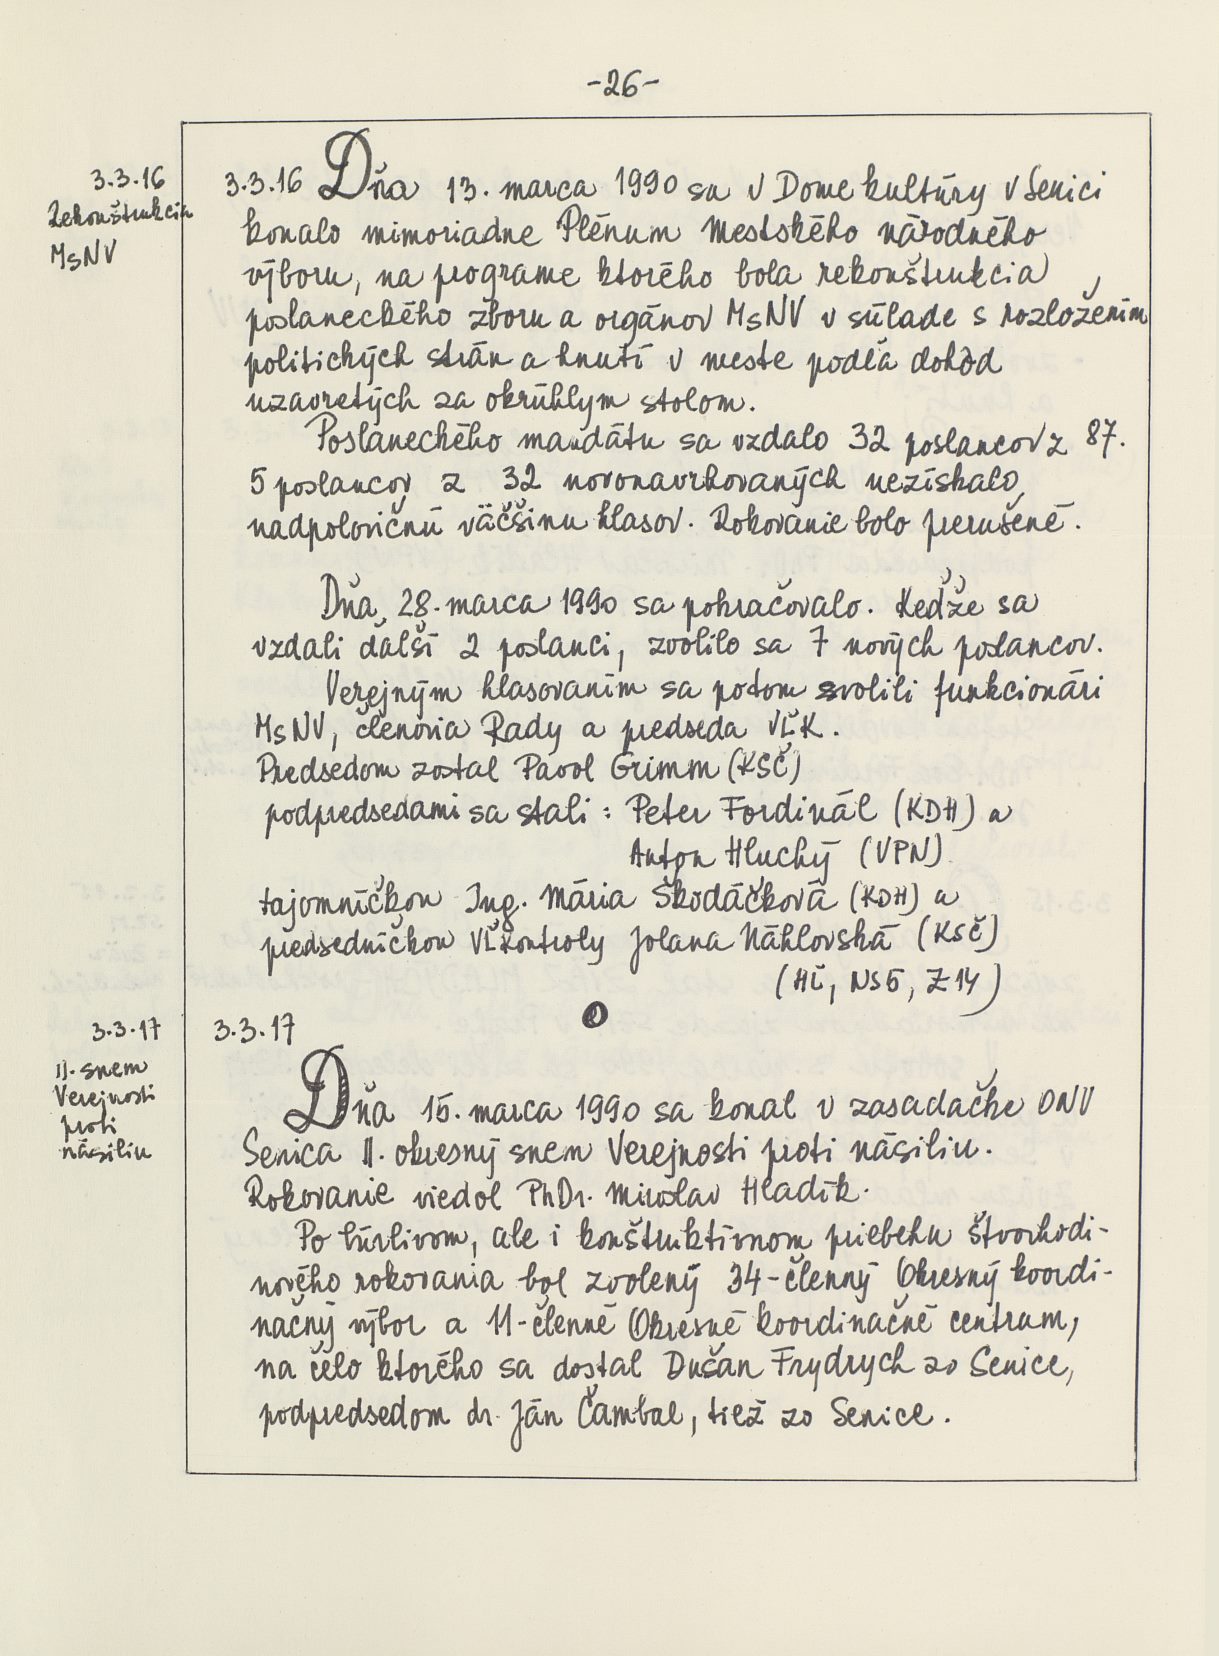 -26-
3.3.16
Rekonštrukcia
MsNV
3.3.16 Dňa 13. marca 1990 sa v Dome kultúry v Senici
konalo mimoriadne Plénum Mestského národného
výboru, na programe ktorého bola rekonštrukcia
poslaneckého zboru a orgánov MsNV v súlade s rozložením
politických strán a hnutí v meste podľa dohôd
uzavretých za okrúhlym stolom.
Poslaneckého mandátu sa vzdalo 32 poslancov z 87.
5 poslancov z 32 novonavrhovaných nezískalo
nadpolovičnú väčšinu hlasov. Rokovanie bolo prerušené.
Dňa 28. marca 1990 sa pokračovalo. Keďže sa
vzdali ďalší 2 poslanci, zvolilo sa 7 nových poslancov.
Verejným hlasovaním sa potom zvolili funkcionári
MsNV, členovia Rady a predseda VĽK.
Predsedom zostal Pavol Grimm (KSČ)
podpredsedami sa stali: Peter Fordinál (KDH) a
Anton Hluchý (VPN)
tajomníčkou Ing. Mária Škodáčková (KDH) a
predsedníčkou VĽKontroly Jolana Náhlovská (KSČ)
(Hl, NS5, Z14)
3.3.17
II. snem
Verejnosti
proti
násiliu
3.3.17
Dňa 15. marca 1990 sa konal v zasadačke ONV
Senica II. okresný snem Verejnosti proti násiliu.
Rokovanie viedol PhDr. Miroslav Hladík.
Po búrlivom, ale i konštruktívnom priebehu štvorhodi-
nového rokovania bol zvolený 34-členný Okresný koordi-
načný výbor a 11-členné Okresné koordinačné centrum,
na čelo ktorého sa dostal Dušan Frydrych zo Senice,
podpredsedom dr. Ján Čambal, tiež zo Senice.